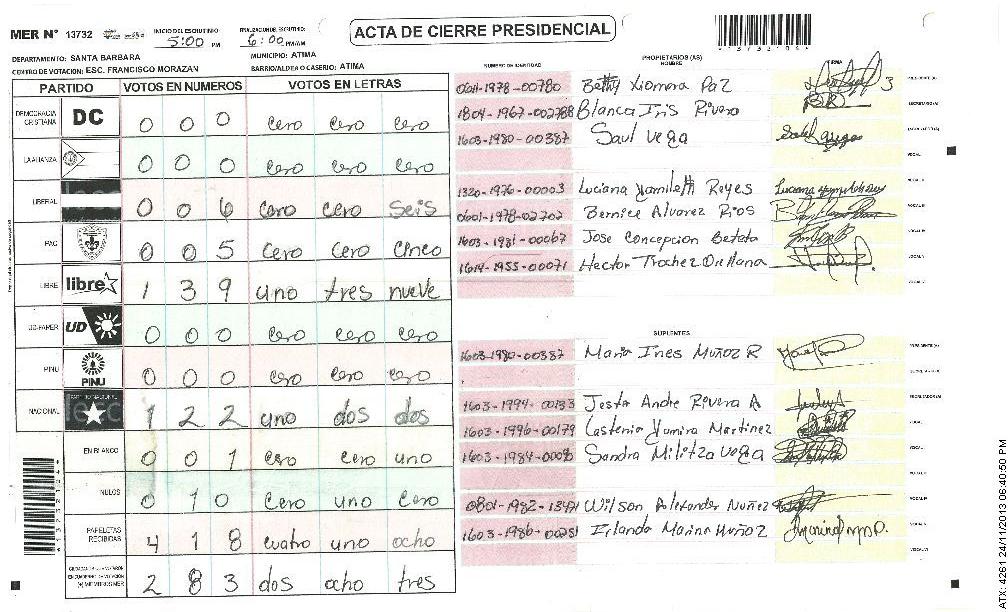 MER N° 13732
INICIO DEL ESCRUTINIO 5:00 PM
FINALIZACION DEL ESCRUTINIO 6:00 PM/AM
ACTA DE CIERRE PRESIDENCIAL
DEPARTAMENTO: SANTA BARBARA
MUNICIPIO: ATIMA
CENTRO DE VOTACION: ESC. FRANCISCO MORAZAN
BARRIO/ALDEA O CASERIO: ATIMA
PARTIDO VOTOS EN NUMEROS VOTOS EN LETRAS
DEMOCRACIA CRISTIANA DC 0 0 0 cero cero cero
LA ALIANZA 0 0 0 cero cero cero
LIBERAL 0 0 6 cero cero seis
PAC 0 0 5 cero cero cinco
LIBRE libre 1 3 9 uno tres nueve
UD-FAPER UD 0 0 0 cero cero cero
PINU PINU 0 0 0 cero cero cero
NACIONAL 1 2 2 uno dos dos
EN BLANCO 0 0 1 cero cero uno
NULOS 0 1 0 cero uno cero
PAPELETAS RECIBIDAS 4 1 8 cuatro uno ocho
2 8 3 dos ocho tres
NUMERO DE IDENTIDAD
PROPIETARIOS (AS)
NOMBRE
FIRMA
0611-1978-00780 Betty Xiomora Paz
1804-1967-002788 Blanca Iris Rivera
1603-1980-00387 Saul Vega
1320-1976-00003 Luciana Yamileth Reyes
0601-1978-02702 Bernice Alvarez Rios
1603-1981-00067 Jose Concepcion
1614-1955-00071 Hector Trochez Orellana
SUPLENTES
1603-1980-00387 Maria Ines Muñoz R
1603-1994-00133 Andre Rivera A
1603-1996-00179 Martinez
1603-1984-0008 Sandra Militza Vega
0801-1982-13471 Wilson Nuñez
1603-1986-00251 Marina Muñoz
ATX: 4261 24/11/2013 06:40:50 PM